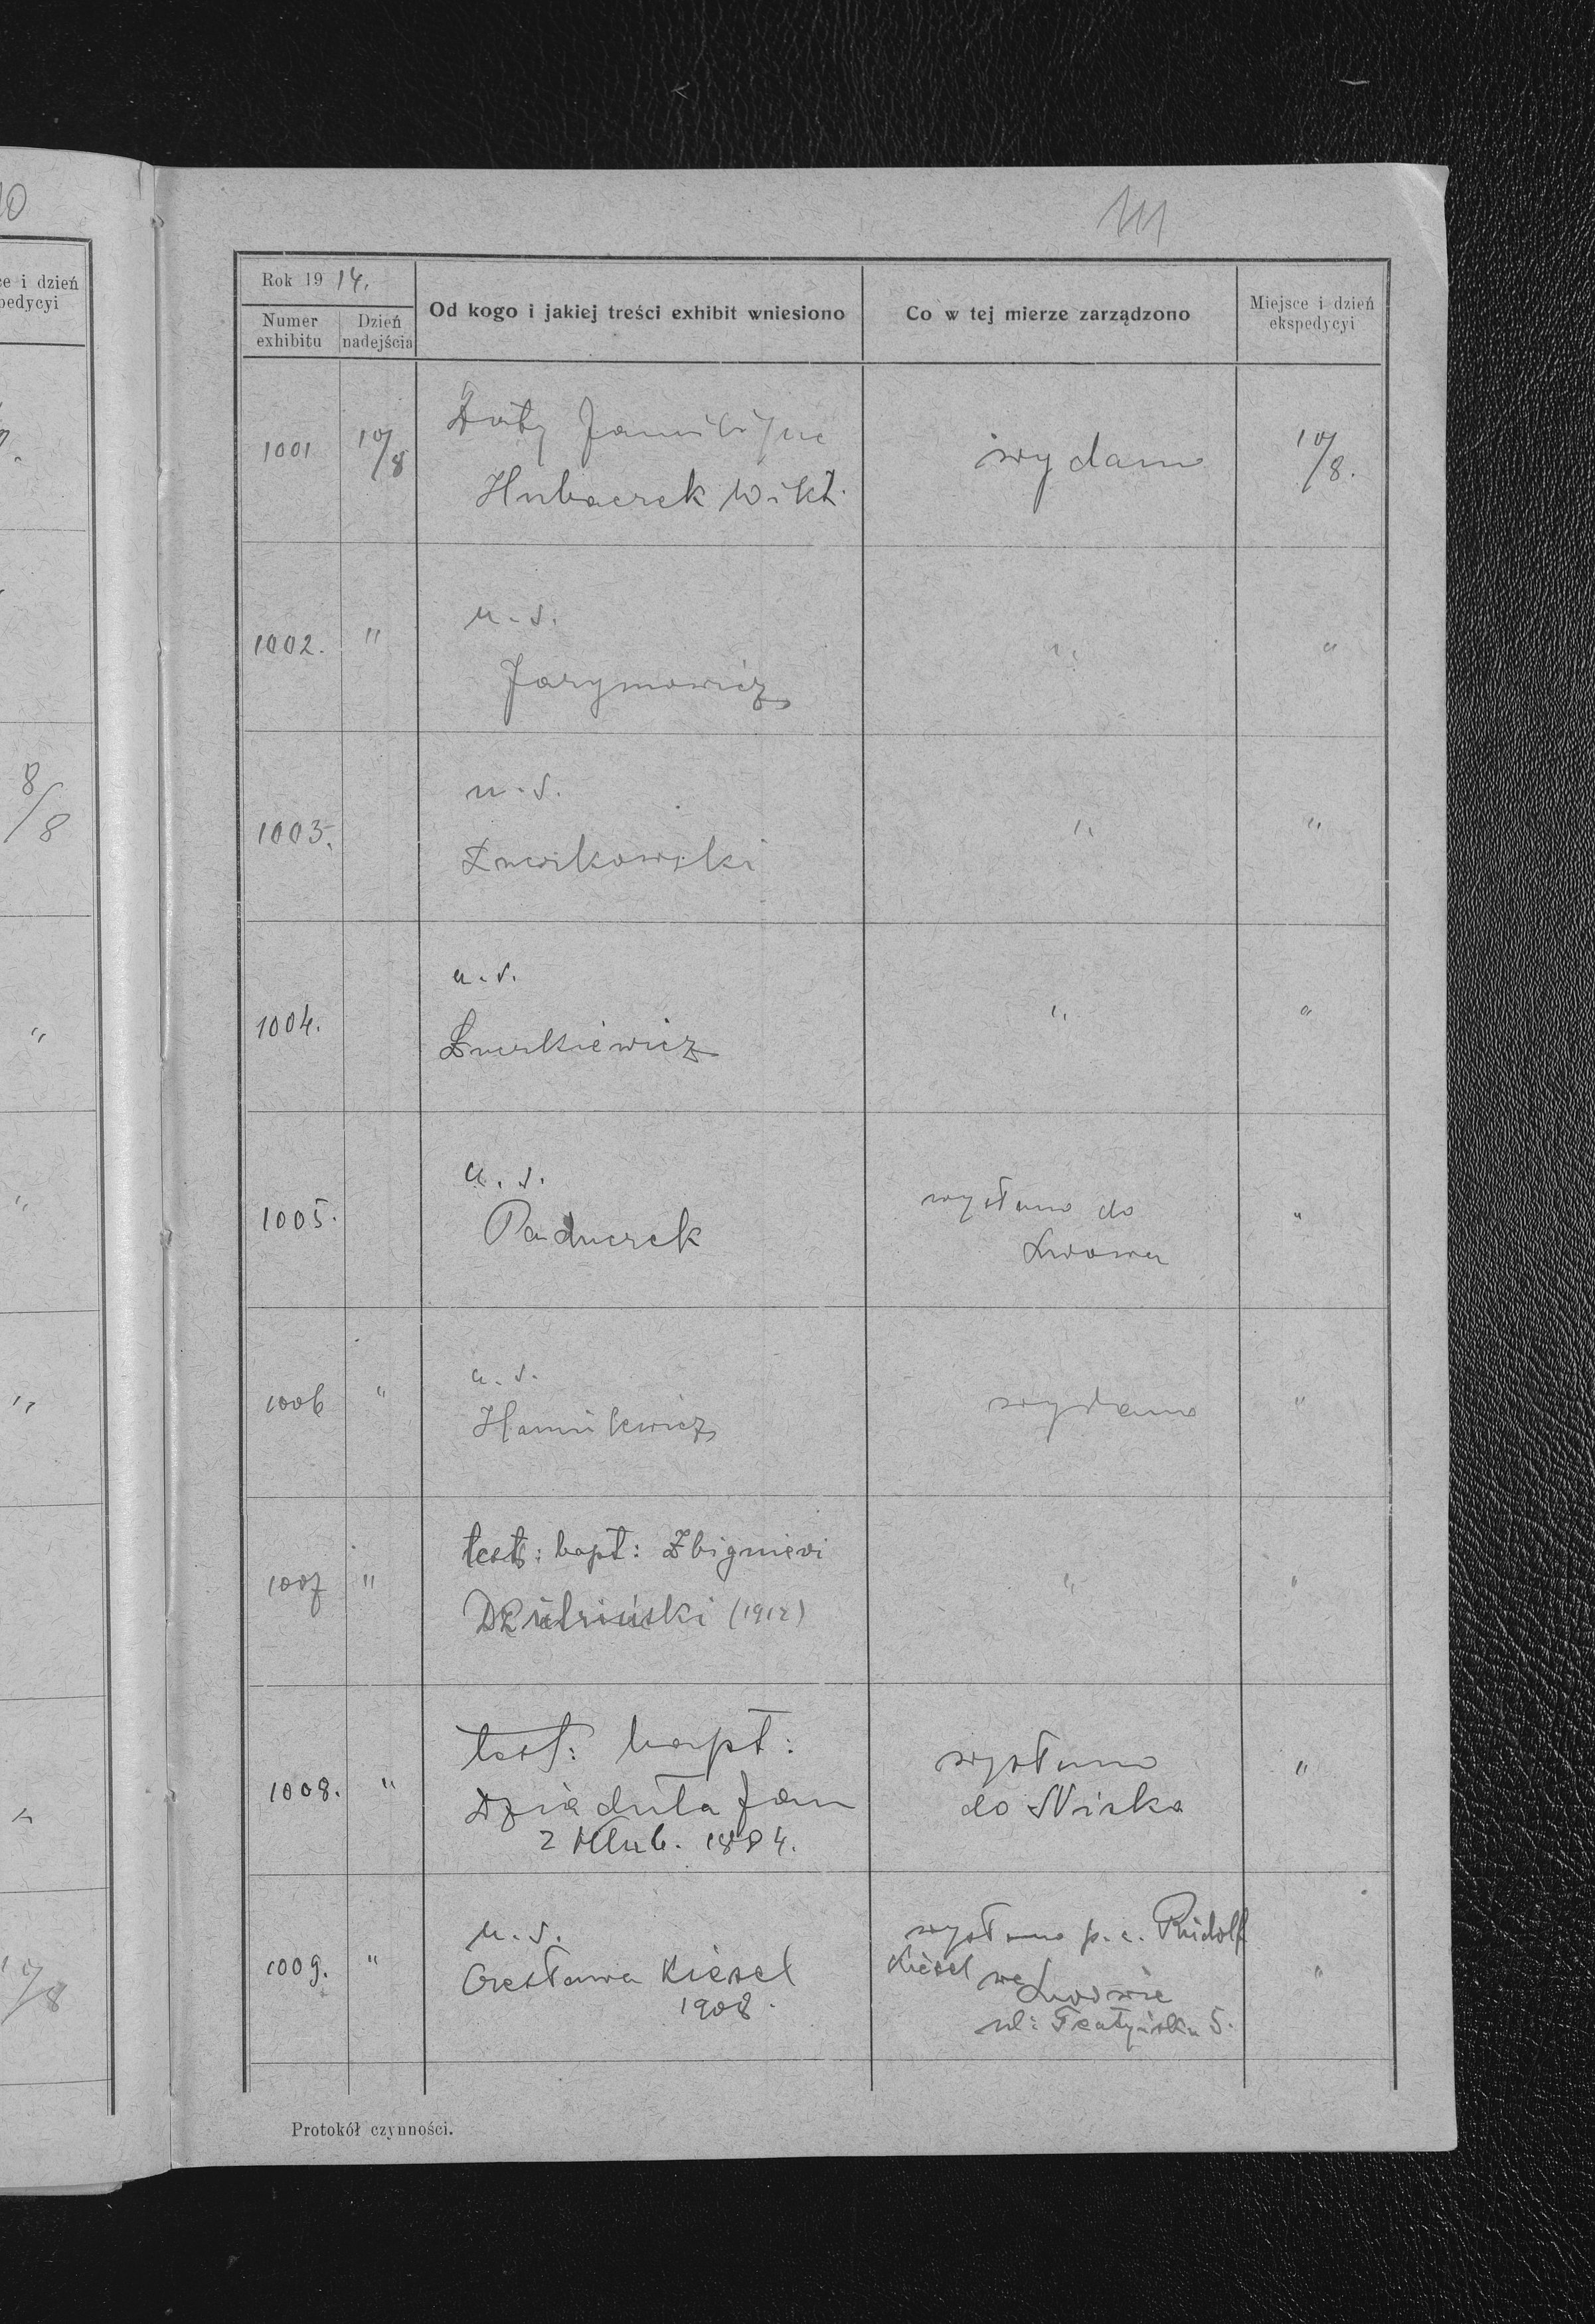 10
ce i dzień
pedycyi
8/8
"
"
"
"
10/8
111
Rok 19 14.
Numer exhibitu
Dzień nadejścia
Od kogo i jakiej treści exhibit wniesiono
Co w tej mierze zarządzono
Miejsce i dzień ekspedycyi
1001 10/8 Daty familijne wydano 10/8.
Hubaczek Wikt.
1002. " u. s. " "
Jarymowicz
1003. u. s. " "
1004. u. s. " "
1005. u. s. wysłano do "
Paduczek Lwowa
1006 " u. s. wydano "
1007 " test: bapt: Zbigniewi " "
(1912)
1008. " test: bapt: wysłano "
Dziaduła Jan do Niska
1884.
1009. " u. s. wysłano p. a. Rudolf "
Czesława Kiesel Kiesel we Lwowie
1908. ul: 5.
Protokół czynności.